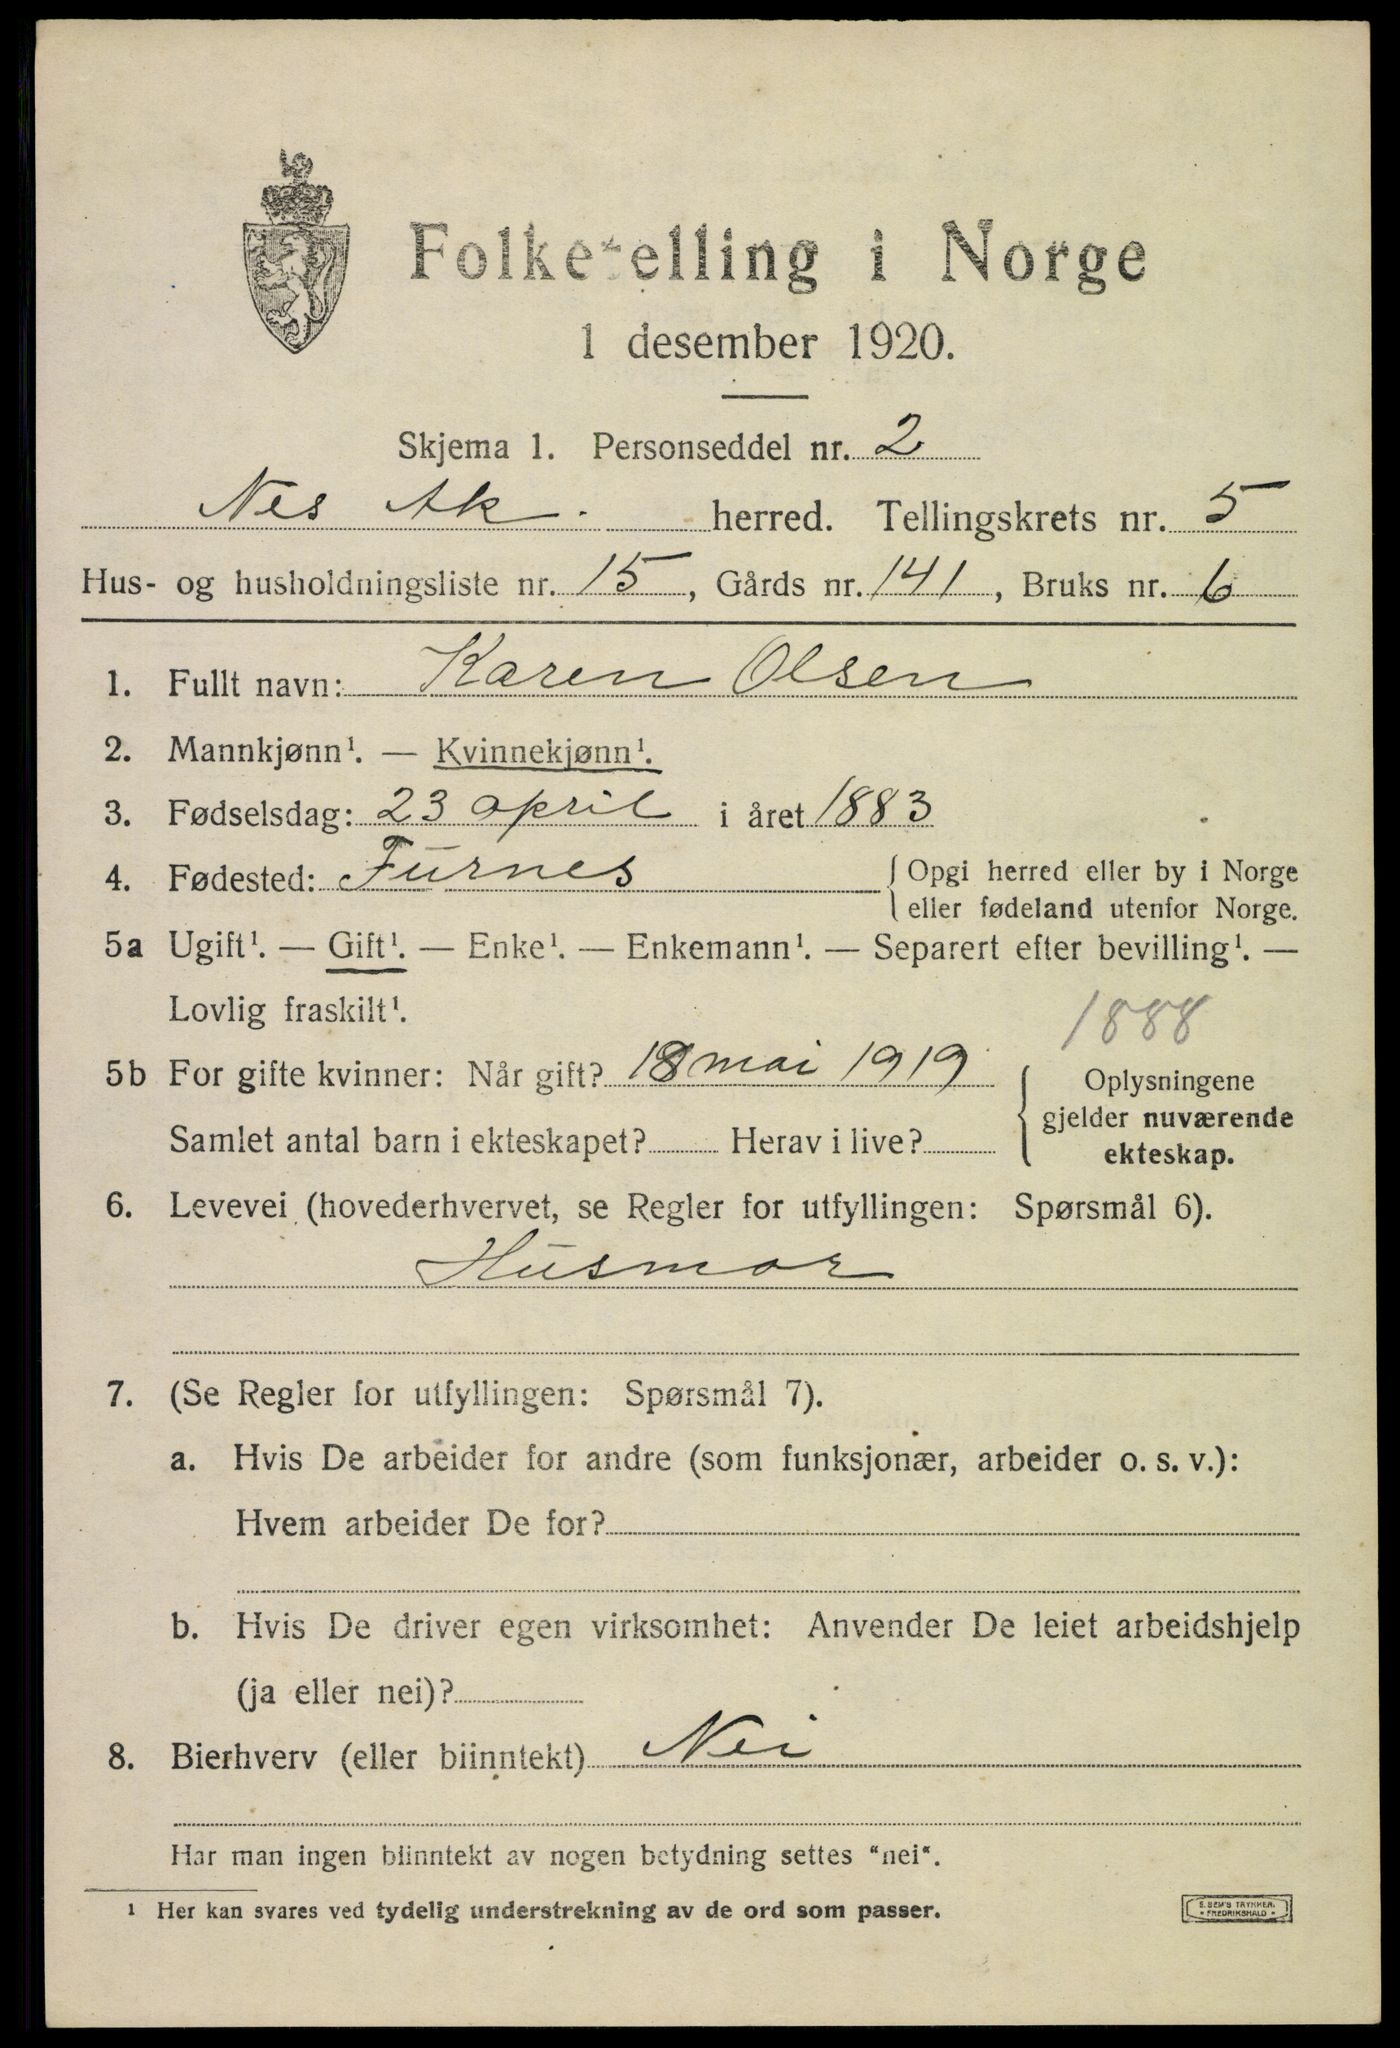 Folketelling i Norge
1 desember 1920.
Skjema 1. Personseddel nr. 2
Nes Ak. herred. Tellingskrets nr. 5
Hus- og husholdningsliste nr. 15, Gårds nr. 141, Bruks nr. 6
1. Fullt navn: Karen Olsen
2. Mannkjønn¹. — Kvinnekjønn¹.
3. Fødselsdag: 23 april i året 1883
4. Fødested: Furnes { Opgi herred eller by i Norge
eller fødeland utenfor Norge.
5a Ugift¹. — Gift¹. — Enke¹. — Enkemann¹. — Separert efter bevilling¹. —
Lovlig fraskilt¹.
1888
5b For gifte kvinner: Når gift? 18 mai 1919
Samlet antal barn i ekteskapet? Herav i live?
{ Oplysningene
gjelder nuværende
ekteskap.
6. Levevei (hovederhvervet, se Regler for utfyllingen: Spørsmål 6).
Husmor
7. (Se Regler for utfyllingen: Spørsmål 7).
a. Hvis De arbeider for andre (som funksjonær, arbeider o. s. v.):
Hvem arbeider De for?
b. Hvis De driver egen virksomhet: Anvender De leiet arbeidshjelp
(ja eller nei)?
8. Bierhverv (eller biinntekt) Nei
Har man ingen biinntekt av nogen betydning settes "nei".
¹ Her kan svares ved tydelig understrekning av de ord som passer.
E. SEM'S TRYKKERI.
FREDRIKSHALD